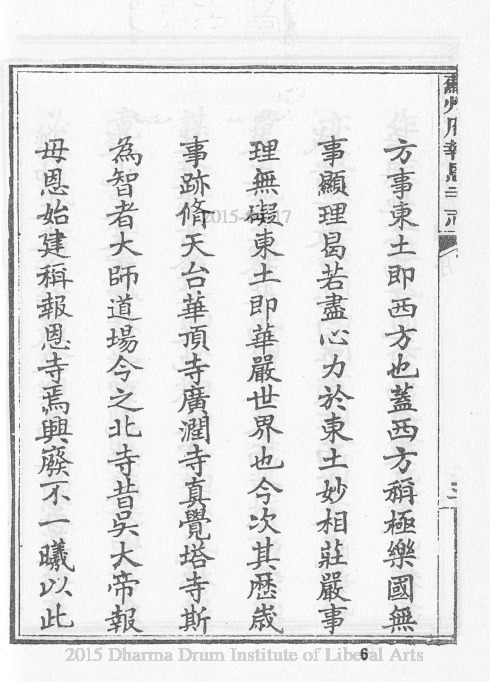 蘇州府報恩寺
方事東土即西方也蓋西方稱極樂國無
事顯理曷若盡心力於東土妙相莊嚴事
理無礙東土即華嚴世界也今次其歷歲
事跡脩天台華頂寺廣潤寺真覺塔寺斯
為智者大師道場今之北寺昔吳大帝報
母恩始建稱報恩寺焉興廢不一曦以此
6
2015 Dharma Drum Institute of Liberal Arts